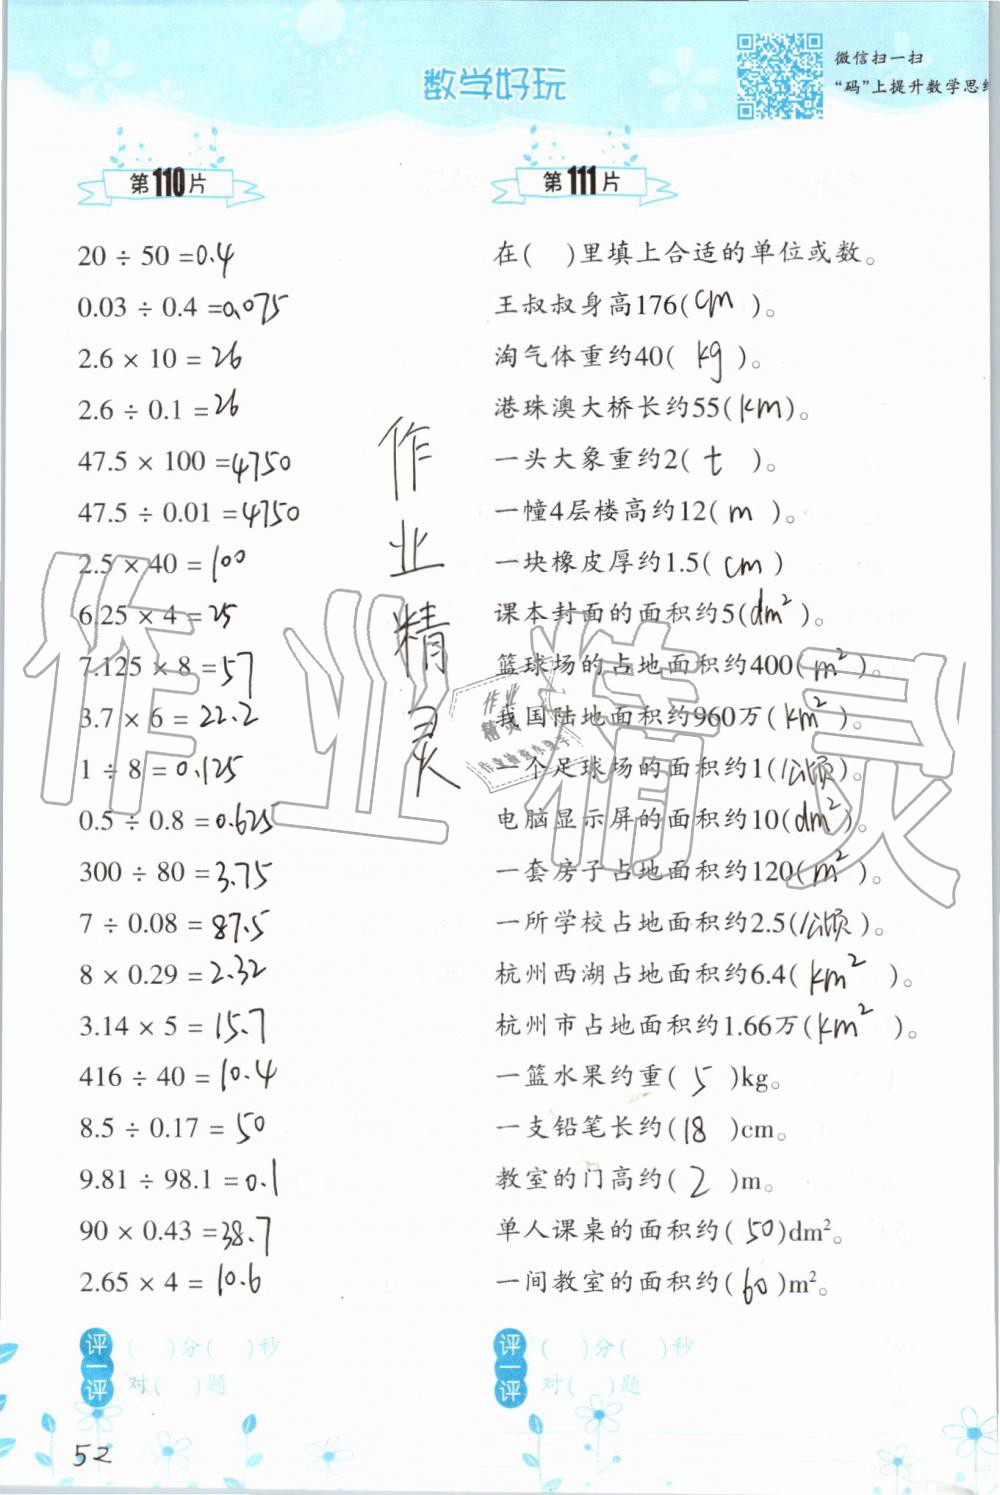 数学好玩
微信扫一扫
“码”上提升数学思维
第110片
20 ÷ 50 =0.4
0.03 ÷ 0.4 =0.075
2.6 × 10 = 26
2.6 ÷ 0.1 =26
47.5 × 100 =4750
47.5 ÷ 0.01 =4750
2.5 × 40 = 100
6.25 × 4 = 25
7.125 × 8 = 57
3.7 × 6 = 22.2
1 ÷ 8 = 0.125
0.5 ÷ 0.8 = 0.625
300 ÷ 80 = 3.75
7 ÷ 0.08 = 87.5
8 × 0.29 = 2.32
3.14 × 5 = 15.7
416 ÷ 40 = 10.4
8.5 ÷ 0.17 = 50
9.81 ÷ 98.1 = 0.1
90 × 0.43 = 38.7
2.65 × 4 = 10.6
评一评
( )分( )秒
对( )题
52
作业精灵
第111片
在( )里填上合适的单位或数。
王叔叔身高176( cm )。
淘气体重约40( kg )。
港珠澳大桥长约55( km )。
一头大象重约2( t )。
一幢4层楼高约12( m )。
一块橡皮厚约1.5( cm )
课本封面的面积约5( dm² )。
篮球场的占地面积约400( m² )。
我国陆地面积约960万( km² )。
一个足球场的面积约1( 公顷 )。
电脑显示屏的面积约10( dm² )。
一套房子占地面积约120( m² )。
一所学校占地面积约2.5( 公顷 )。
杭州西湖占地面积约6.4( km² )。
杭州市占地面积约1.66万( km² )。
一篮水果约重( 5 )kg。
一支铅笔长约( 18 )cm。
教室的门高约( 2 )m。
单人课桌的面积约( 50 )dm²。
一间教室的面积约( 60 )m²。
评一评
( )分( )秒
对( )题
作业精灵